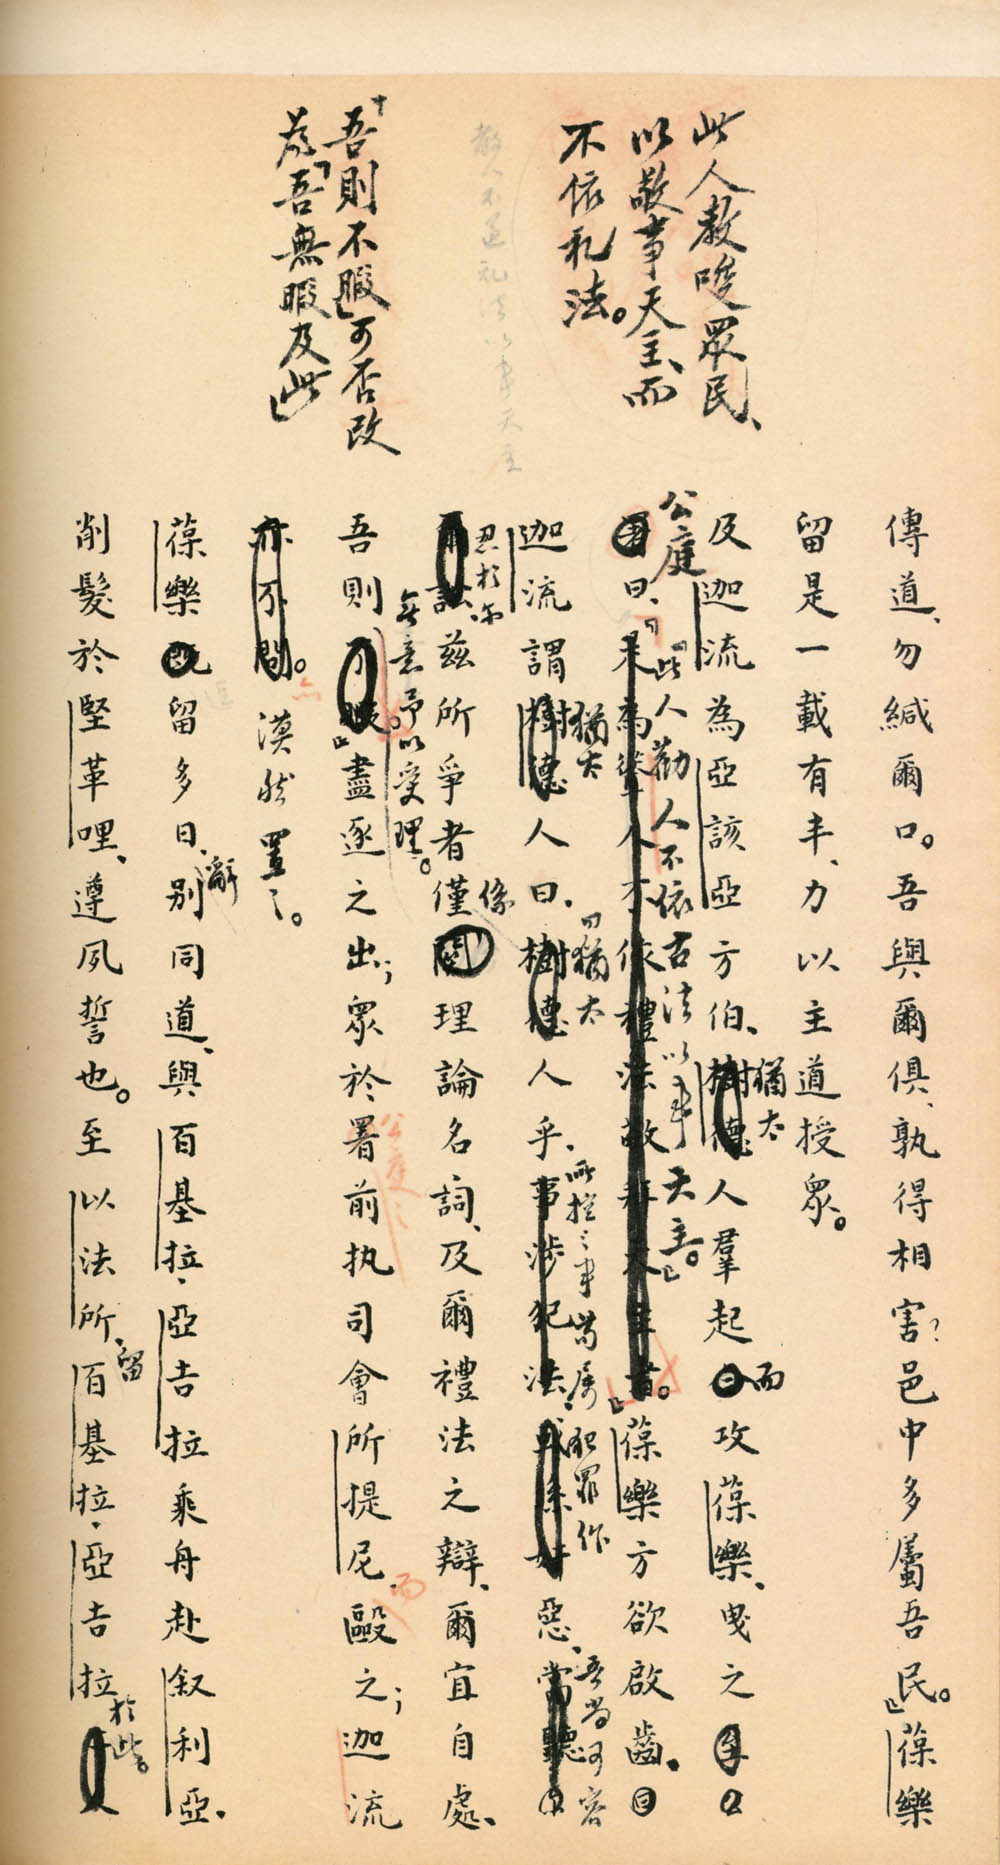 此人教唆眾民、
以敬事天主、而
不依礼法。
教人不遵礼法以事天主
吾則不暇」可否改
為「吾無暇及此」
傳道、勿緘爾口。吾與爾俱、孰得相害?邑中多屬吾民。」葆樂
留是一載有半、力以主道授眾。
及迦流為亞該亞方伯、樹德人羣起攻葆樂、曳之
猶太
而
公庭
曰、
「此人勸人不依古法以事天主。」
葆樂方欲啟齒。
迦流謂樹德人曰、樹德人乎、事涉犯法、惡、當聽
猶太
「猶太
所控之事苟屬犯罪作
吾尚可容
忍於爾
訟、茲所爭者僅理論名詞、及爾禮法之辯、爾宜自處、
係
吾則盡逐之出;眾於署前执司會所提尼毆之;迦流
無意予以受理。
公庭之
而
亦不問。漠然置之。
葆樂留多日、别同道、與百基拉、亞吉拉乘舟赴叙利亞、
辭
削髮於堅革哩、遵夙誓也。至以法所、百基拉、亞吉拉
留
於此。